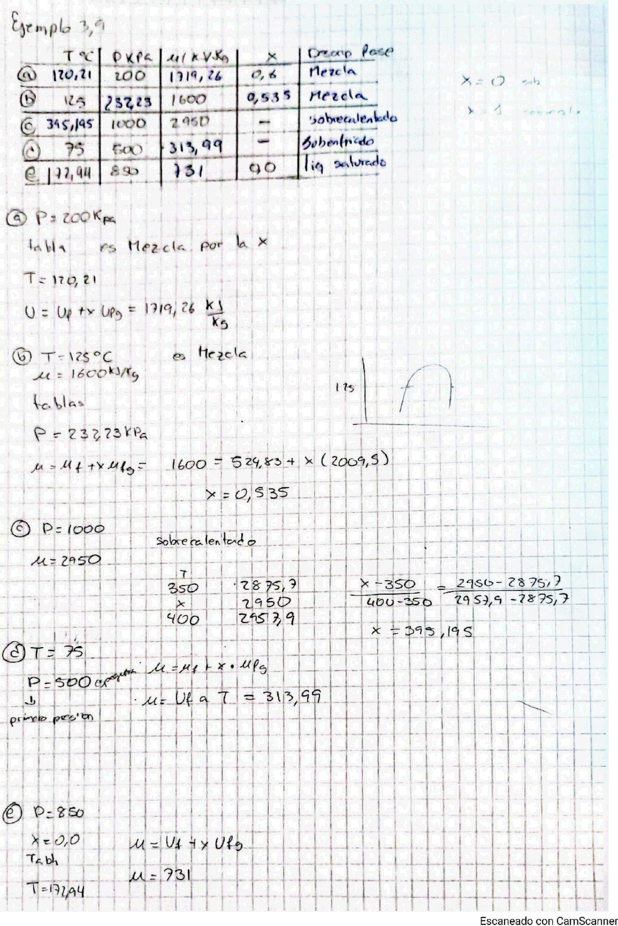 Ejemplo 3,9
T °C P KPa u/kJ/Kg x Descrip Fase
a 120,21 200 1719,26 0,6 Mezcla
b 125 232,23 1600 0,535 Mezcla
c 395,195 1000 2950 — sobrecalentado
d 75 500 313,99 — Subenfriado
e 172,94 850 731 0,0 liq saturado
x = 0
a P = 200 Kpa
tabla es Mezcla por la x
T = 120,21
U = Uf + x Ufg = 1719,26 kJ/Kg
b T = 125 °C es Mezcla
u = 1600 kJ/Kg
tablas
125
P = 232,23 KPa
u = uf + x ufg = 1600 = 524,83 + x (2009,5)
x = 0,535
c P = 1000
sobrecalentado
u = 2950
T
350 2875,7
x 2950
400 2957,9
x - 350 / 400 - 350 = 2950 - 2875,7 / 2957,9 - 2875,7
x = 395,195
d T = 75
P = 500 u = uf + x · ufg
↓
primero presion
u = Uf a T = 313,99
e P = 850
x = 0,0 u = Uf + x Ufg
Tabla
u = 731
T = 172,94
Escaneado con CamScanner